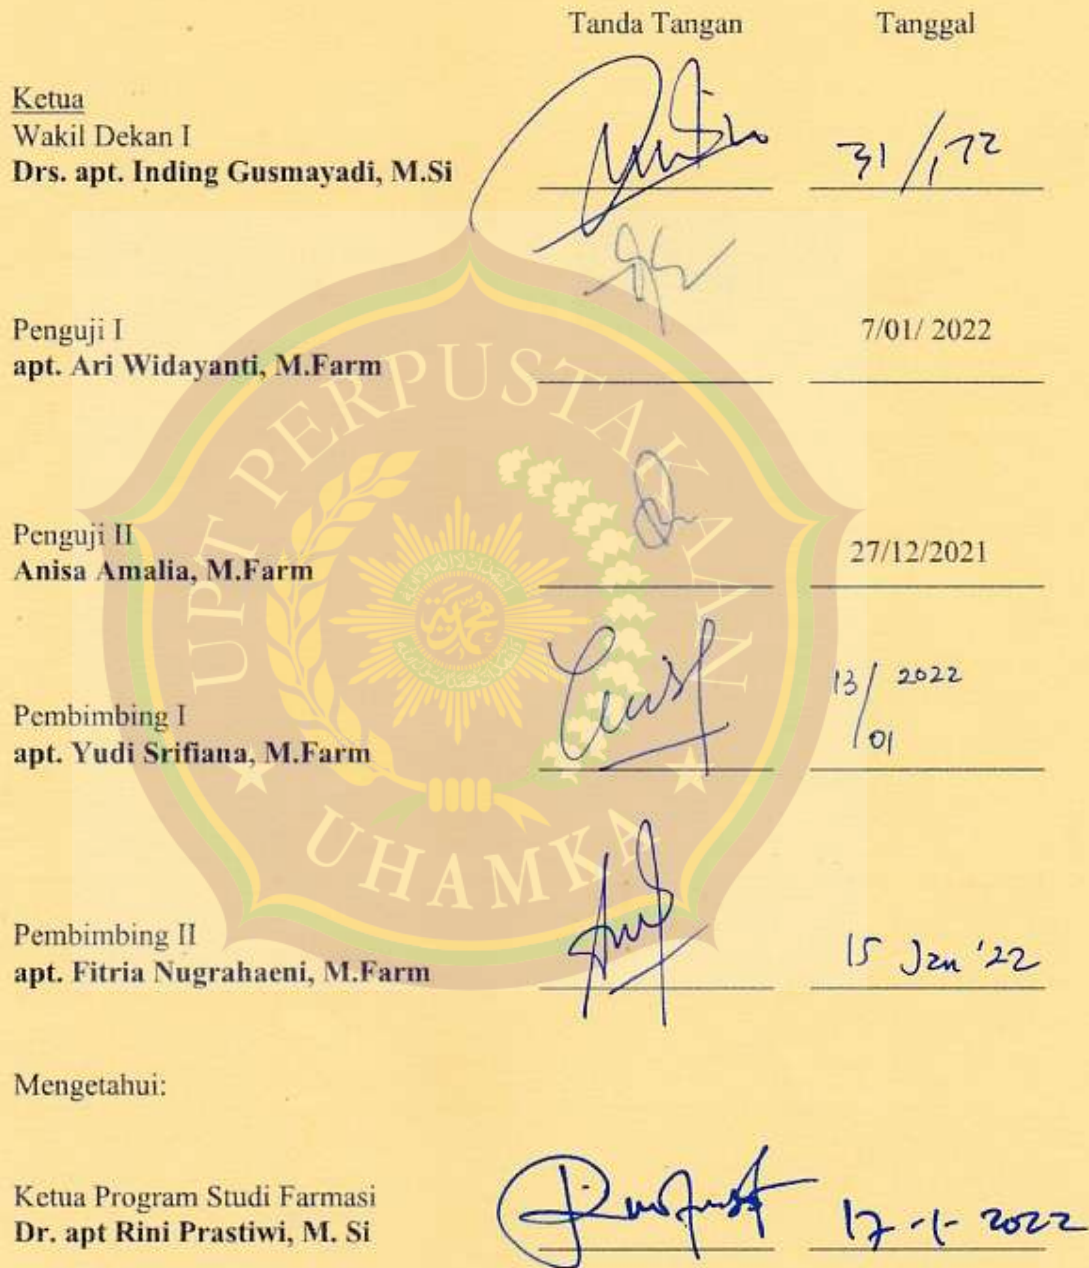 Tanda Tangan Tanggal
Ketua
Wakil Dekan I
Drs. apt. Inding Gusmayadi, M.Si
31/1 22
Penguji I
7/01/ 2022
apt. Ari Widayanti, M.Farm
Penguji II
27/12/2021
Anisa Amalia, M.Farm
13/01 2022
Pembimbing I
apt. Yudi Srifiana, M.Farm
Pembimbing II
apt. Fitria Nugrahaeni, M.Farm
15 Jan '22
Mengetahui:
Ketua Program Studi Farmasi
Dr. apt Rini Prastiwi, M. Si
17-1-2022
UPT PERPUSTAKAAN
UHAMKA